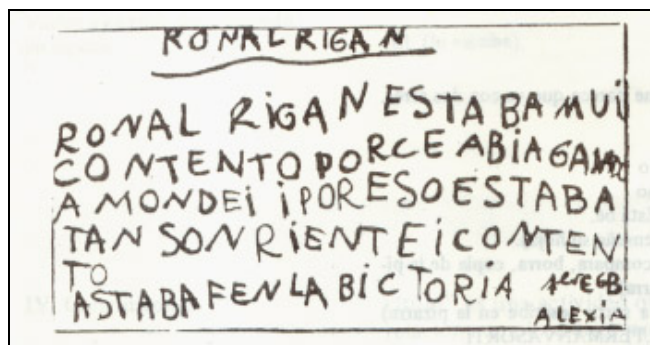 RONAL RIGAN
RONAL RIGAN ESTABA MUI
CONTENTO PORCE ABIA GANADO
A MONDEI I POR ESO ESTABA
TAN SONRIENTE I CONTEN
TO
ASTABA EN LA BICTORIA
ALEXIA